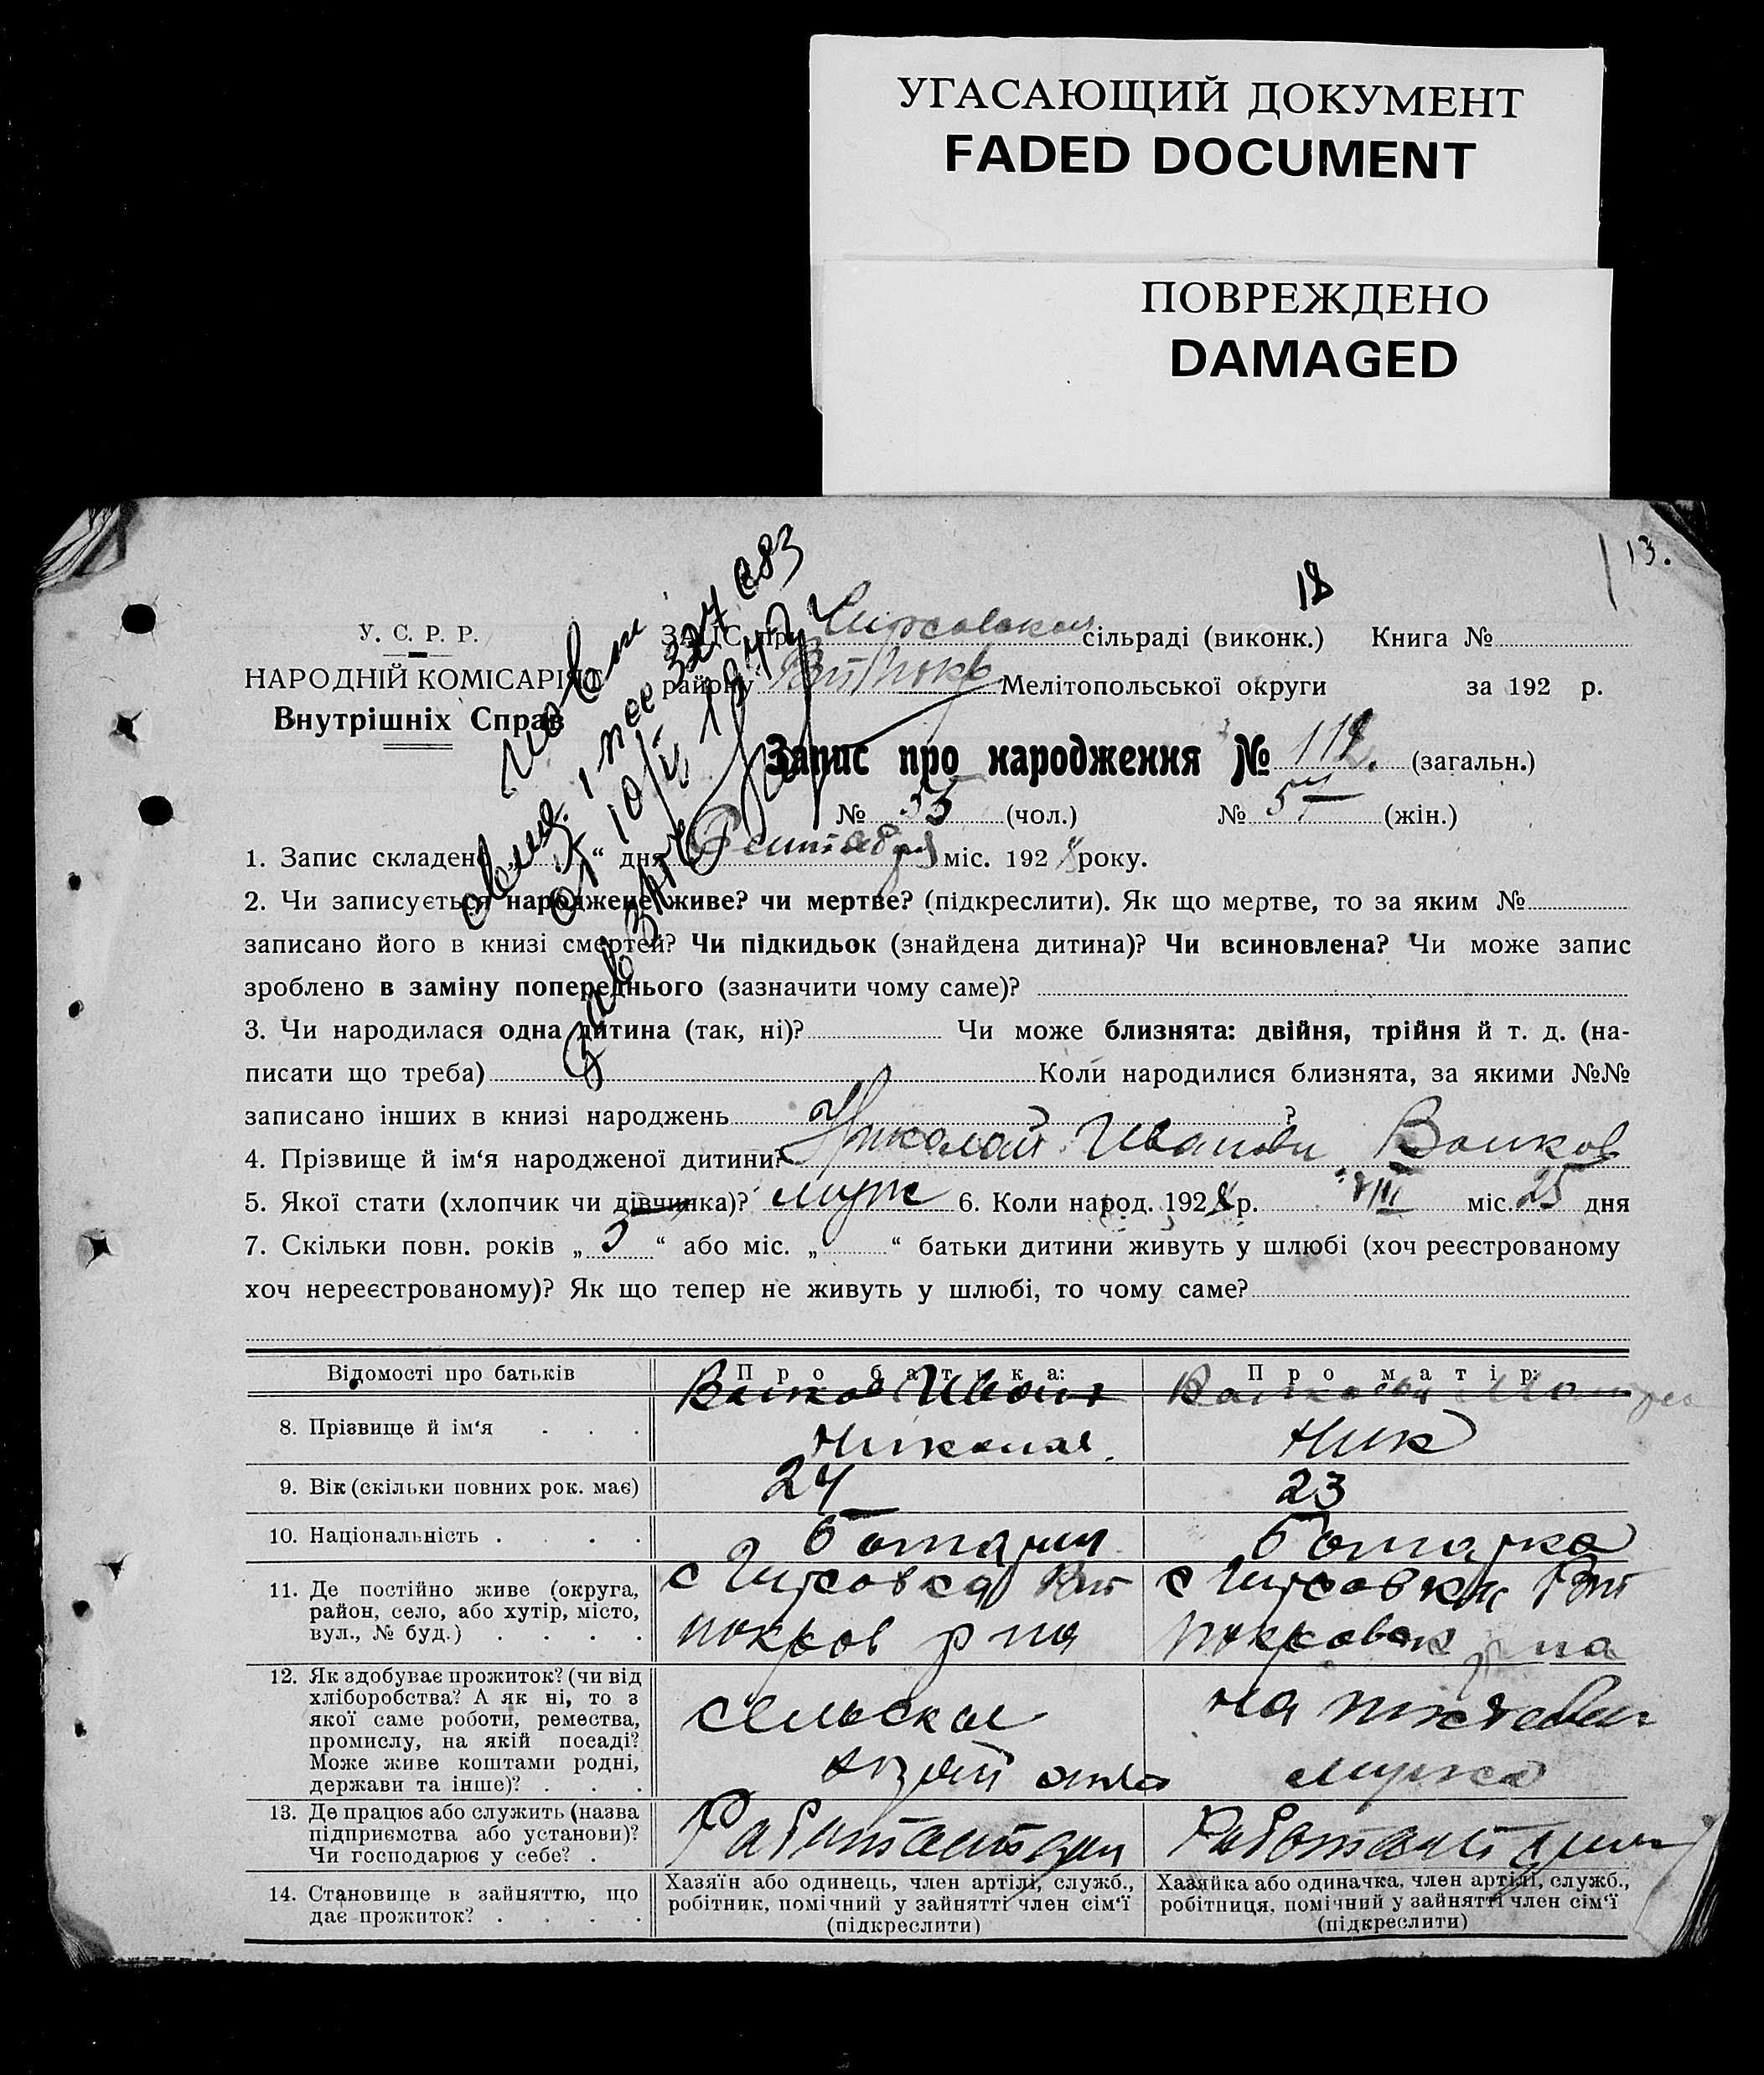 УГАСАЮЩИЙ ДОКУМЕНТ
FADED DOCUMENT
ПОВРЕЖДЕНО
DAMAGED
13.
18
У. С. Р. Р.
НАРОДНІЙ КОМІСАРІЯТ
Внутрішніх Справ
ЗАГС при Гирсовской сільраді (виконк.) Книга №
району Мелітопольської округи за 192 р.
Запис про народження № 112. (загальн.)
№ 55 (чол.) № 57 (жін.)
1. Запис складено „ “ дня Сентября міс. 1928 року.
2. Чи записується народжене живе? чи мертве? (підкреслити). Як що мертве, то за яким №
записано його в книзі смертей? Чи підкидьок (знайдена дитина)? Чи всиновлена? Чи може запис
зроблено в заміну попереднього (зазначити чому саме)?
3. Чи народилася одна дитина (так, ні)? Чи може близнята: двійня, трійня й т. д. (на-
писати що треба) Коли народилися близнята, за якими №№
записано інших в книзі народжень ?
4. Прізвище й ім‘я народженої дитини? Николай Иванови Волков
5. Якої стати (хлопчик чи дівчинка)? муж 6. Коли народ. 1928 р. VIII міс. 25 дня
7. Скільки повн. років „ 3 “ або міс. „ “ батьки дитини живуть у шлюбі (хоч реєстрованому
хоч нереєстрованому)? Як що тепер не живуть у шлюбі, то чому саме?
Відомості про батьків Про батька: Про матір:
8. Прізвище й ім‘я Волков Иван Николая. Волкова Ник
9. Вік (скільки повних рок. має) 24 23
10. Національність болгарин болгарка
11. Де постійно живе (округа,
район, село, або хутір, місто,
вул., № буд.)
с Гирсовка
покров р на
с Гирсовки
покровск р на
12. Як здобуває прожиток? (чи від
хліборобства? А як ні, то з
якої саме роботи, ремества,
промислу, на якій посаді?
Може живе коштами родні,
держави та інше)?
сельское
хозяйство
на иждевен
мужа
13. Де працює або служить (назва
підприємства або установи)?
Чи господарює у себе?
14. Становище в зайняттю, що
дає прожиток?
Хазяїн або одинець, член артілі, служб.,
робітник, помічний у зайнятті член сім‘ї
(підкреслити)
Хазяйка або одиначка, член артілі, служб.,
робітниця, помічний у зайнятті член сім‘ї
(підкреслити)